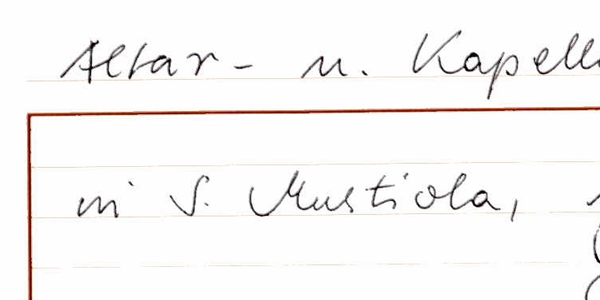 Altar- u. Kapell
in S. Mustiola,